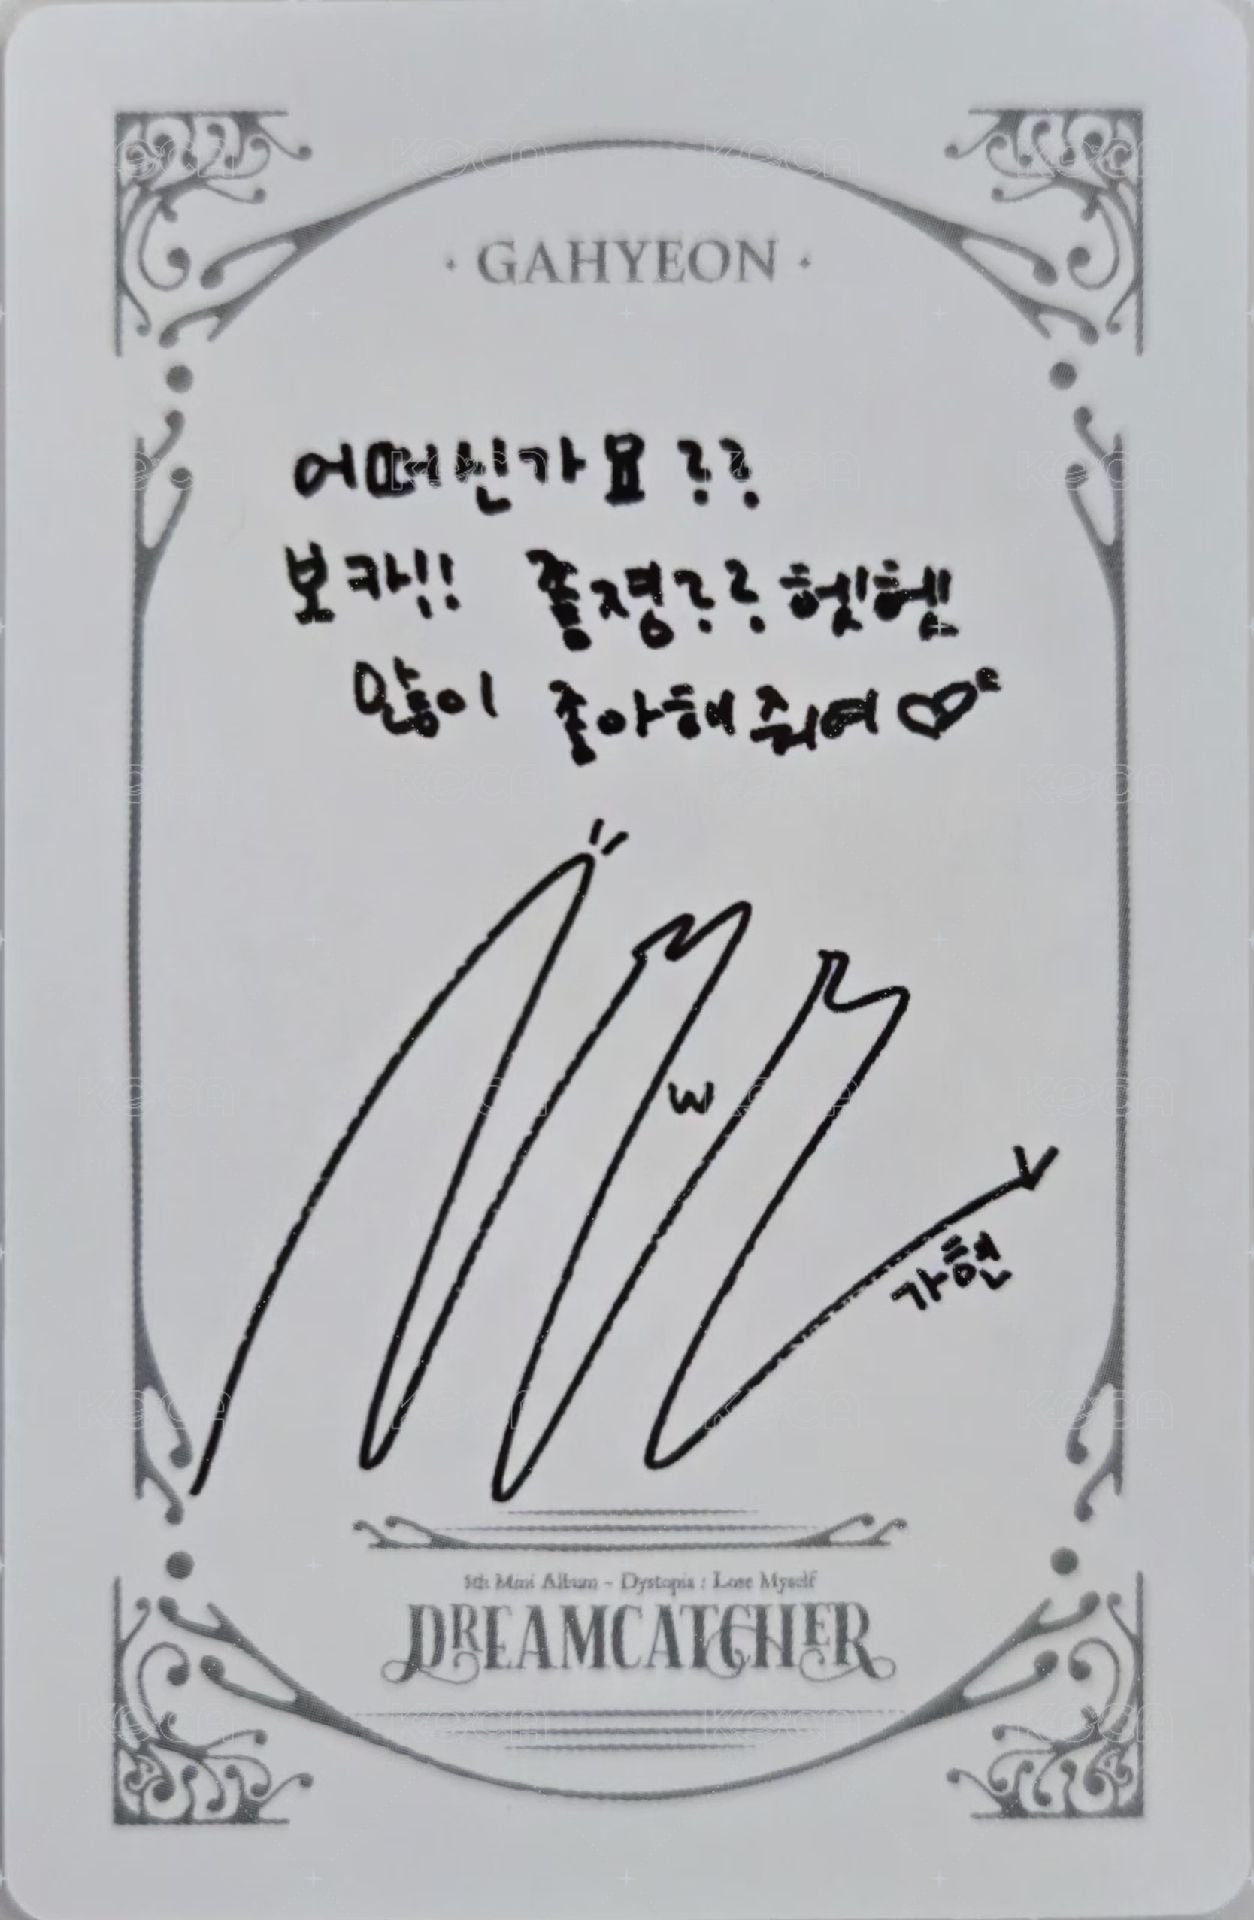 · GAHYEON ·
어떠신가요??
보카!! 죰졍?? 헷헷
많이 좋아해줘여♡
w
가현
5th Mini Album - Dystopia : Lose Myself
DREAMCATCHER
KOCA